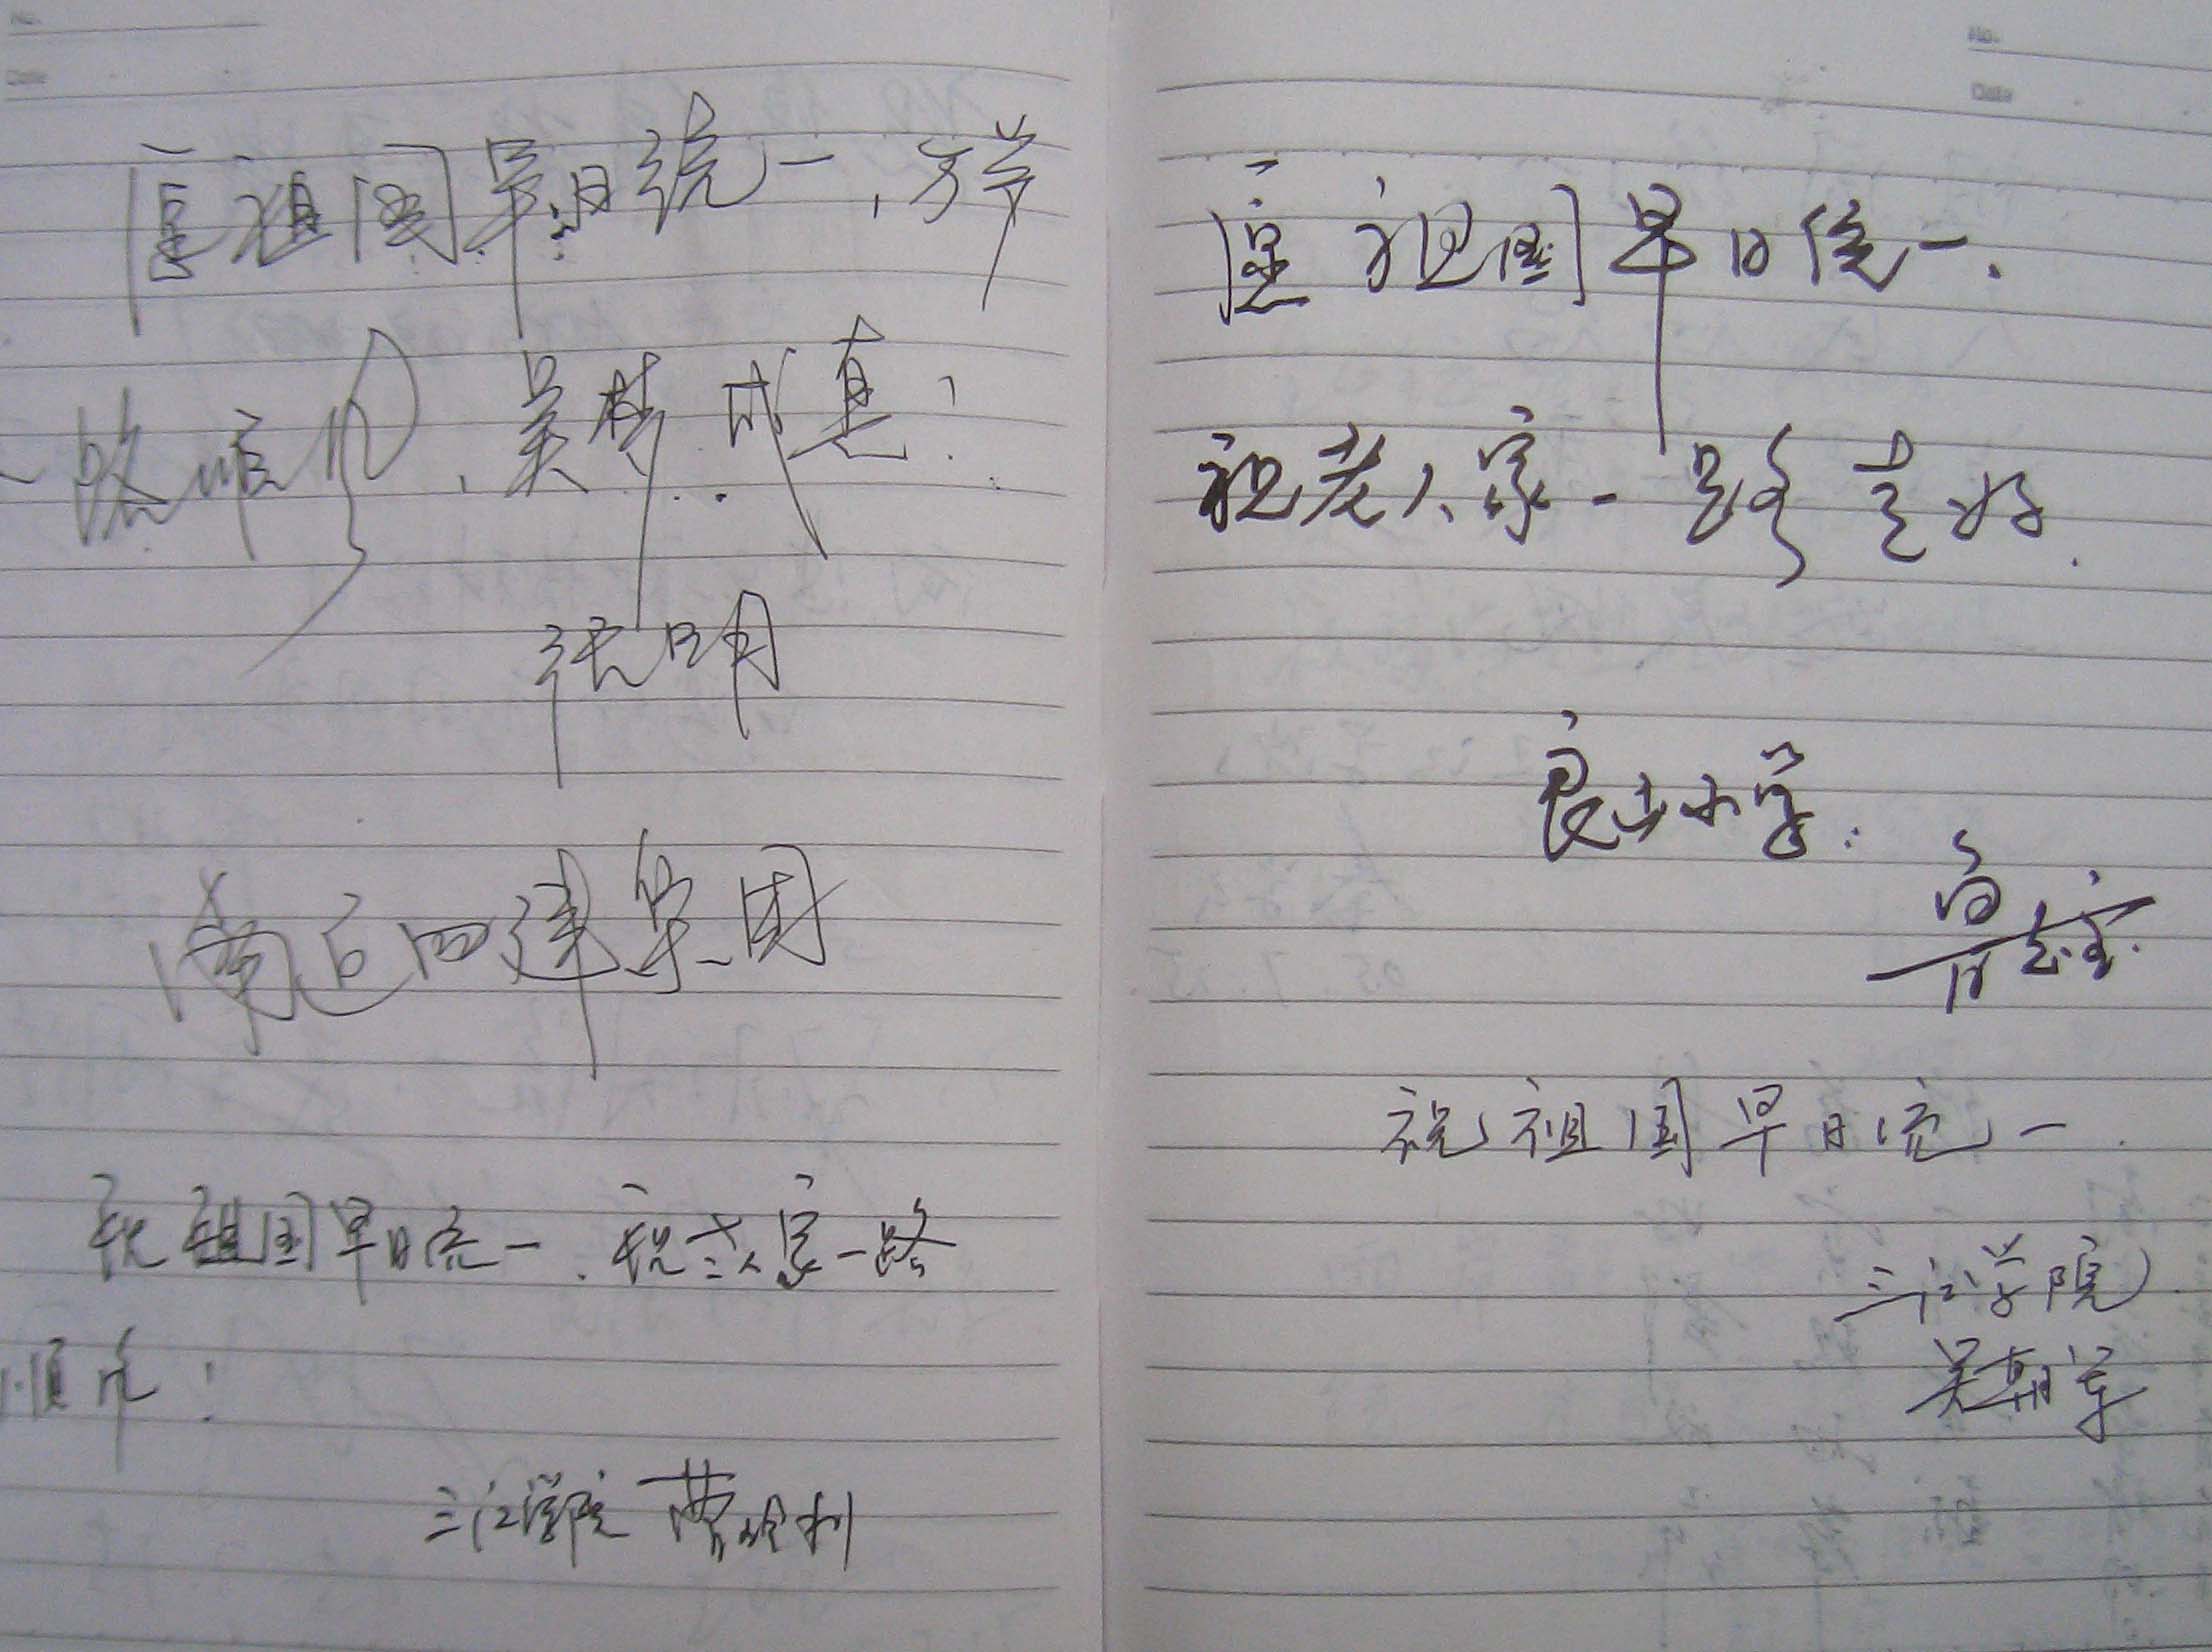 No.
Date
愿祖国早日统一，爷爷
一路顺风，美梦成真！
张明
南通四建集团
祝祖国早日统一．祝老人家一路
顺风！
三江学院 曹
No.
Date
愿祖国早日统一．
祝老人家一路走好．
良山小学：
高
祝祖国早日统一．
三江学院
吴朝军